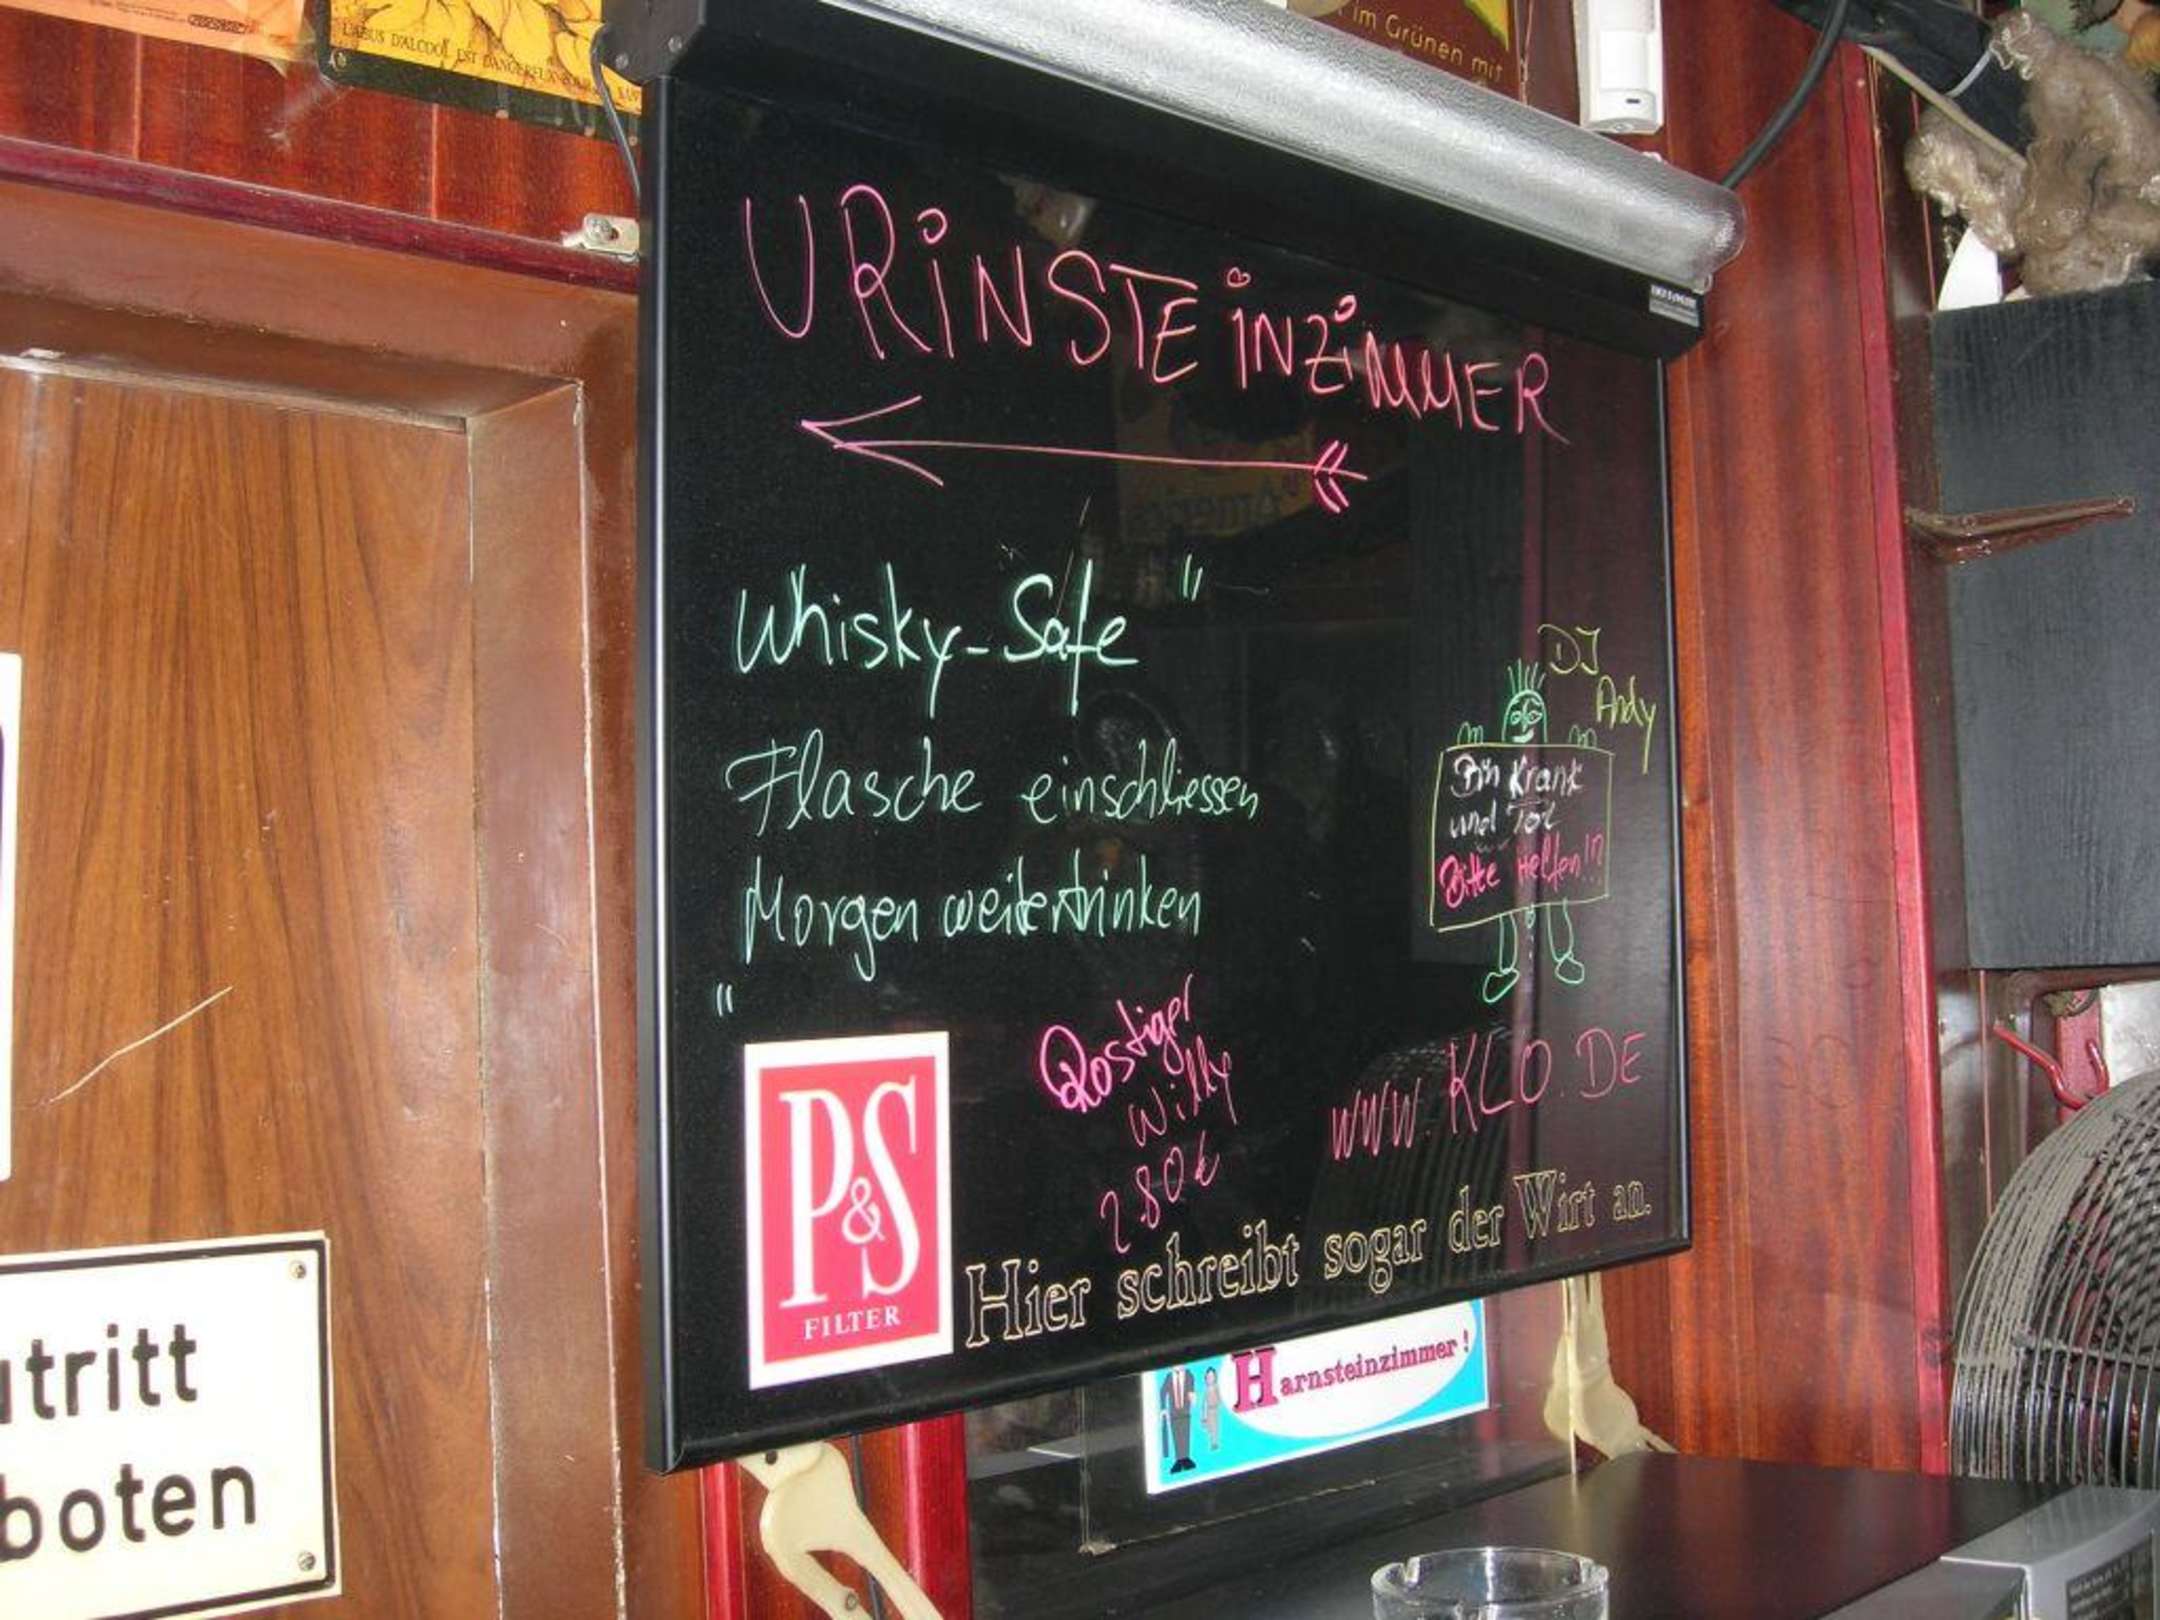 L'ABUS D'ALCOOL EST DANGEREUX
im Grünen mit
URINSTEINZIMMER
Whisky-Safe "
Flasche einschliessen
Morgen weitertrinken
"
DJ
Andy
Bin Krank
und Tot
Bitte Helfen!!?
Rostiger
Willy
2.80€
www.KLO.DE
P&S
FILTER
Hier schreibt sogar der Wirt an.
Harnsteinzimmer!
utritt
boten